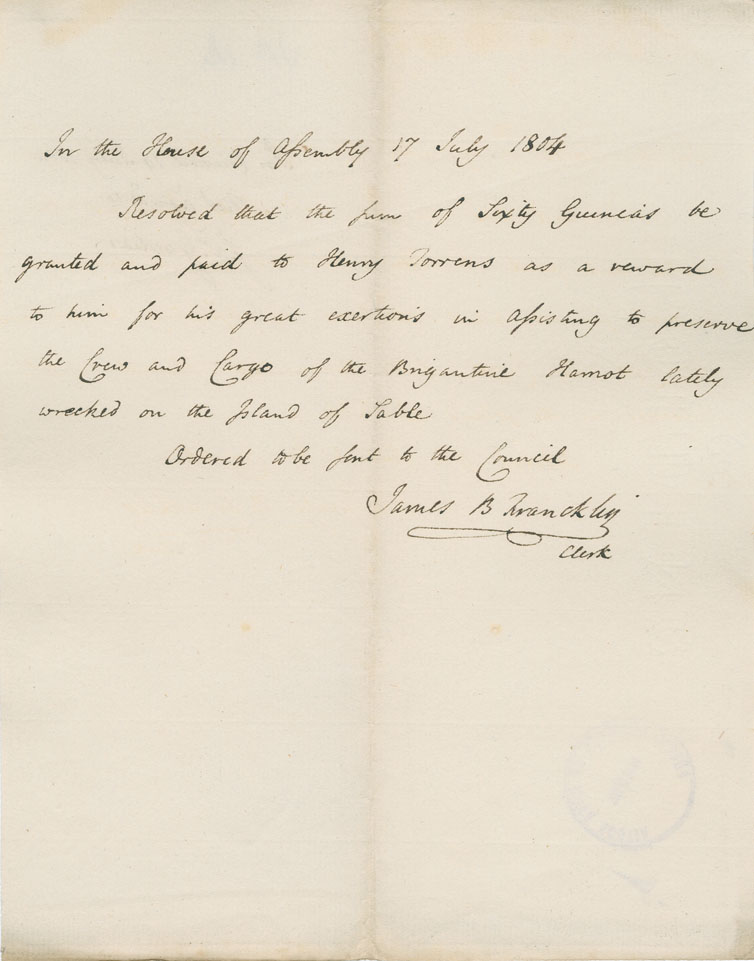 In the House of Assembly 17 July 1804
Resolved that the sum of Sixty Guineas be
granted and paid to Henry Torrens as a reward
to him for his great exertions in Assisting to preserve
the Crew and Cargo of the Brigantine Harriot lately
wrecked on the Island of Sable
Ordered to be sent to the Council
James B Francklin
Clerk